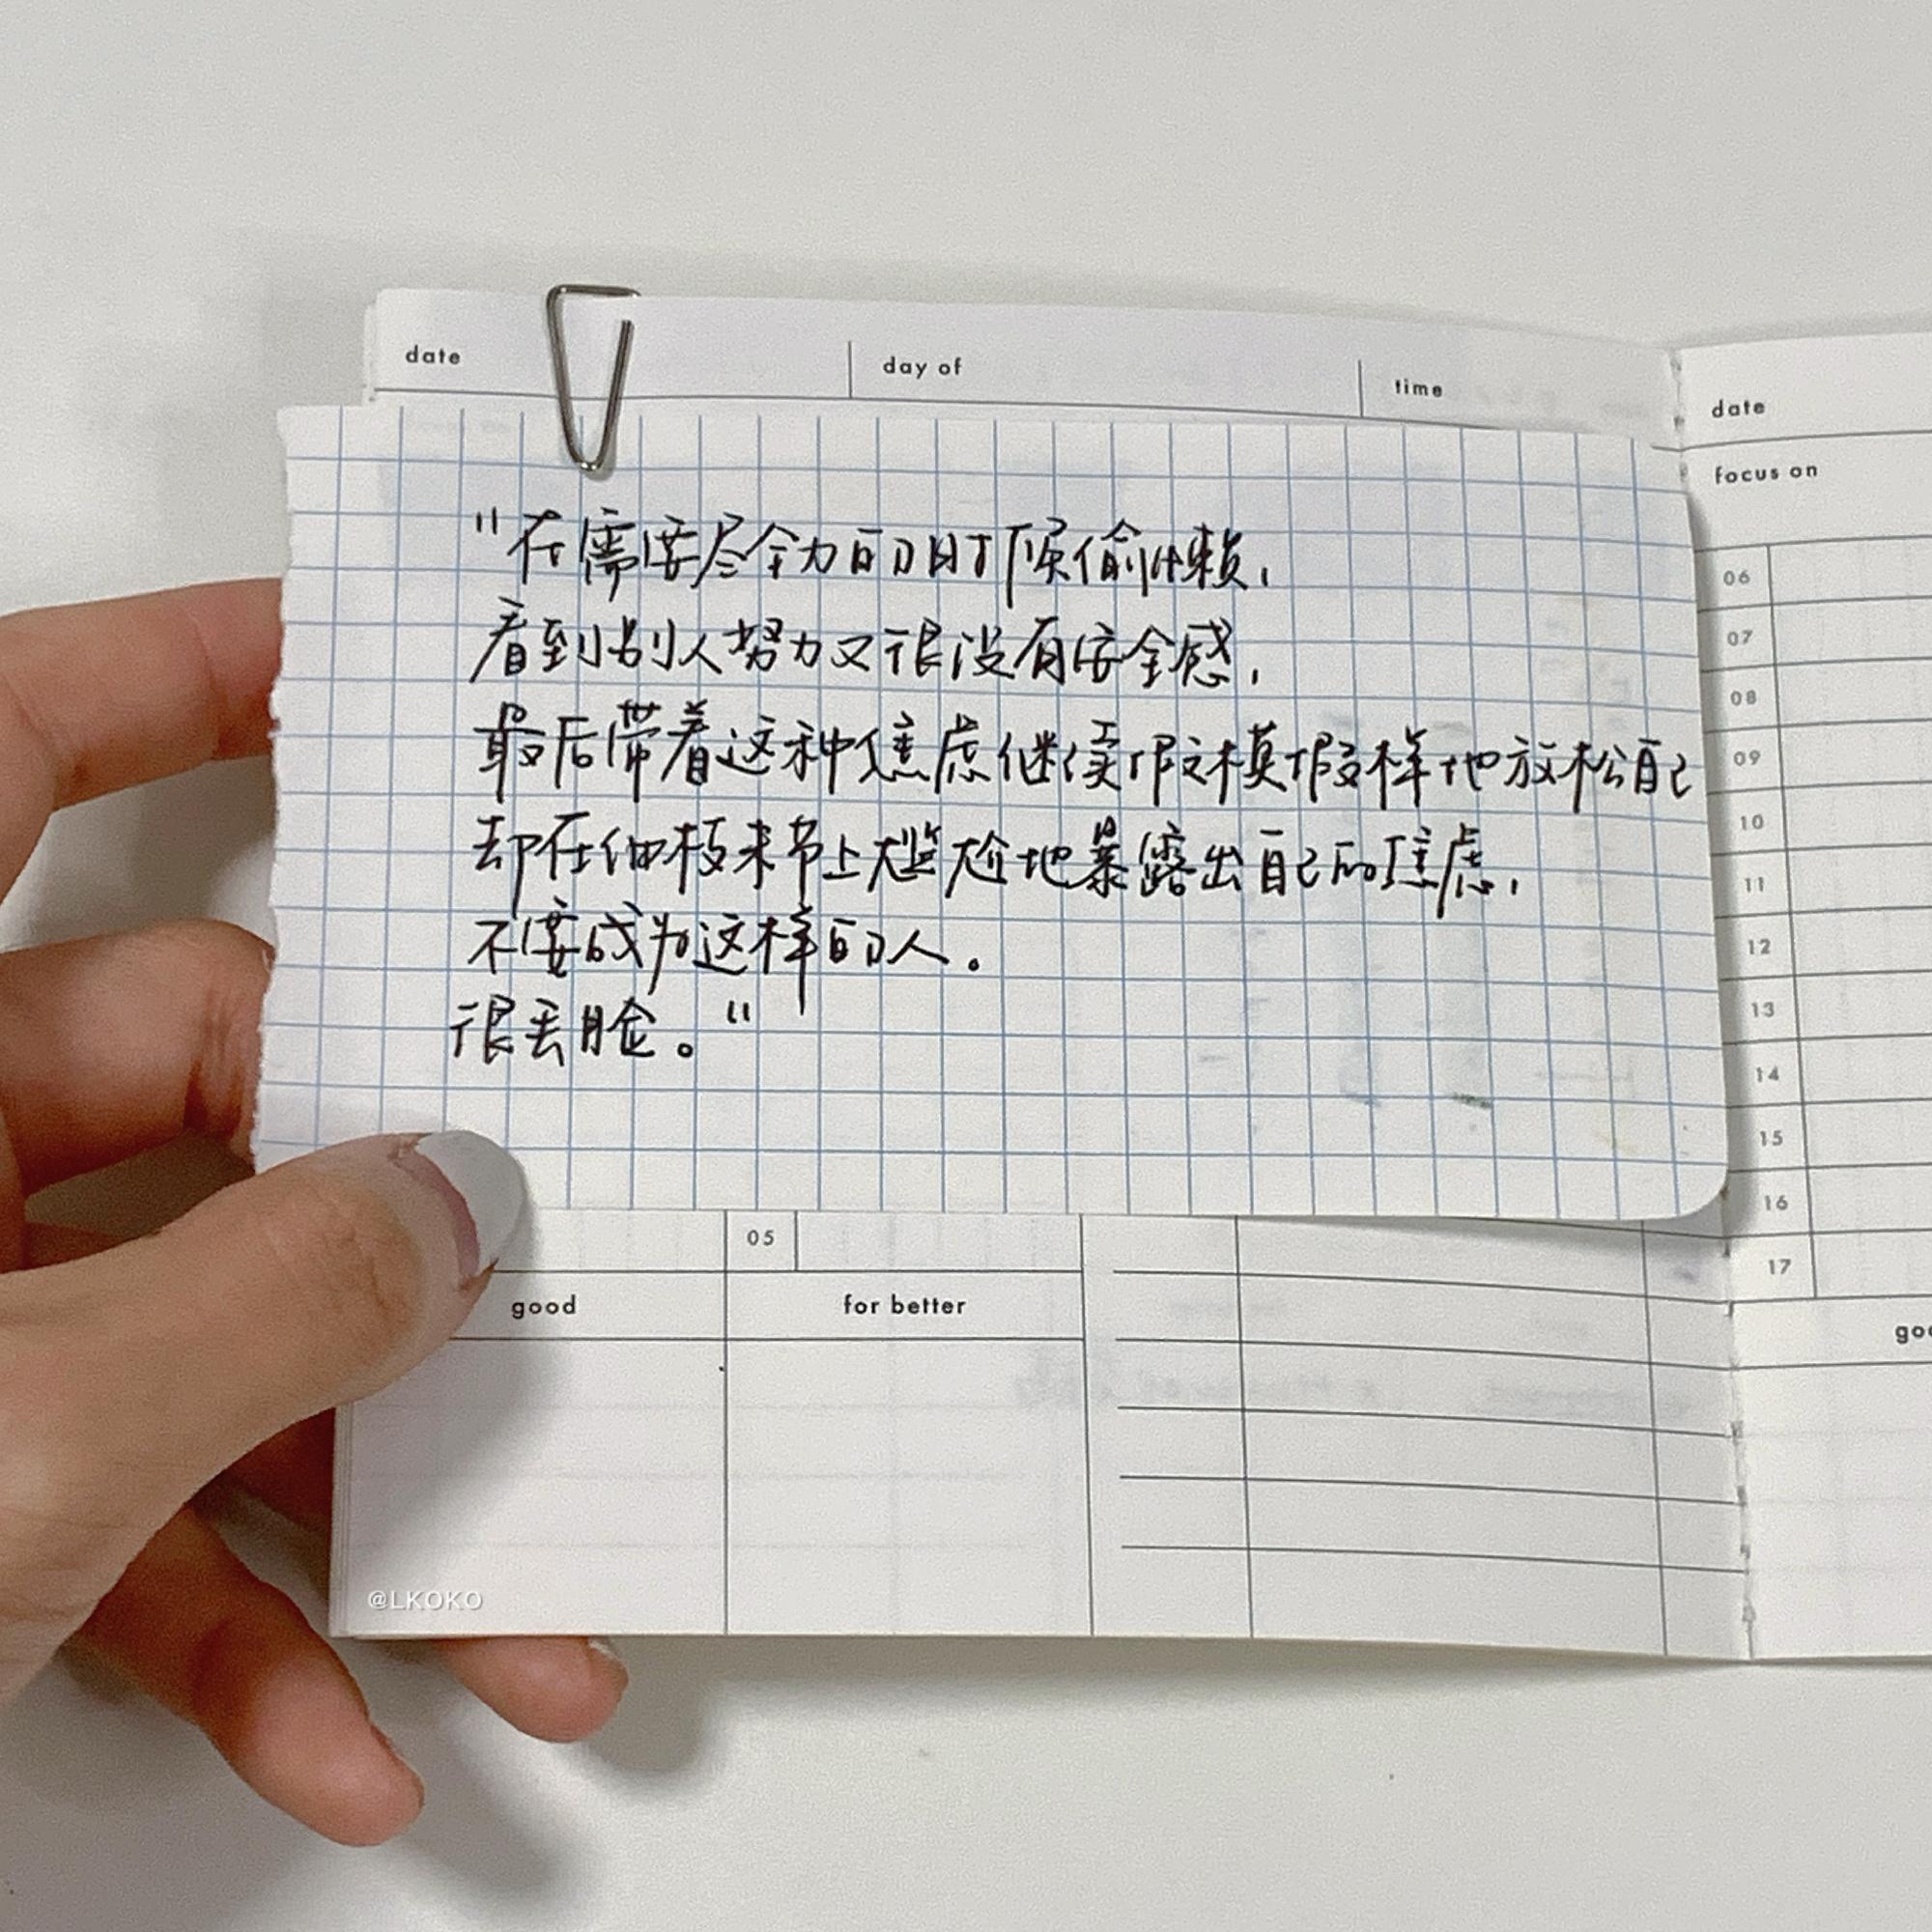 date day of time
"在需要尽全力的时候偷懒,
看到别人努力又很没有安全感,
最后带着这种焦虑继续假模假样地放松自己
却在细枝末节上尴尬地暴露出自己的焦虑,
不要成为这样的人。
很丢脸。"
05
good for better
@LKOKO
date
focus on
06
07
08
09
10
11
12
13
14
15
16
17